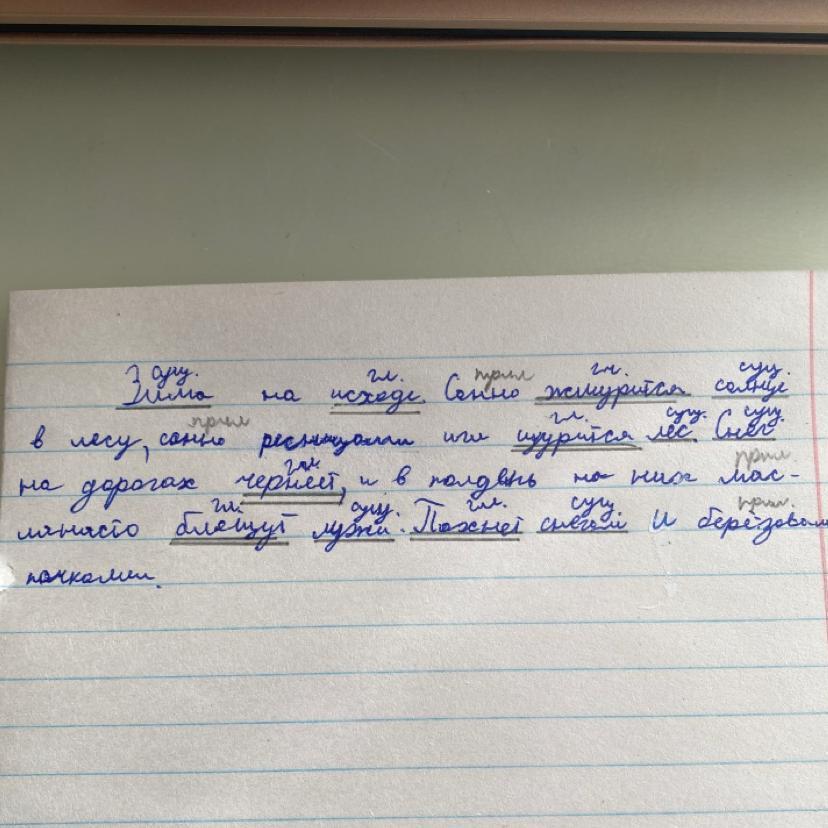 сущ. гл. прил гл. сущ.
Зима на исходе. Сонно жмурится солнце
прил гл. сущ. сущ.
в лесу, сонно ресницами игл щурится лес. Снег
гл. прил.
на дорогах чернеет, и в полдень на них мас-
гл. сущ. гл. сущ. прил.
лянисто блещут лужи. Пахнет снегом и берёзовыми
почками.